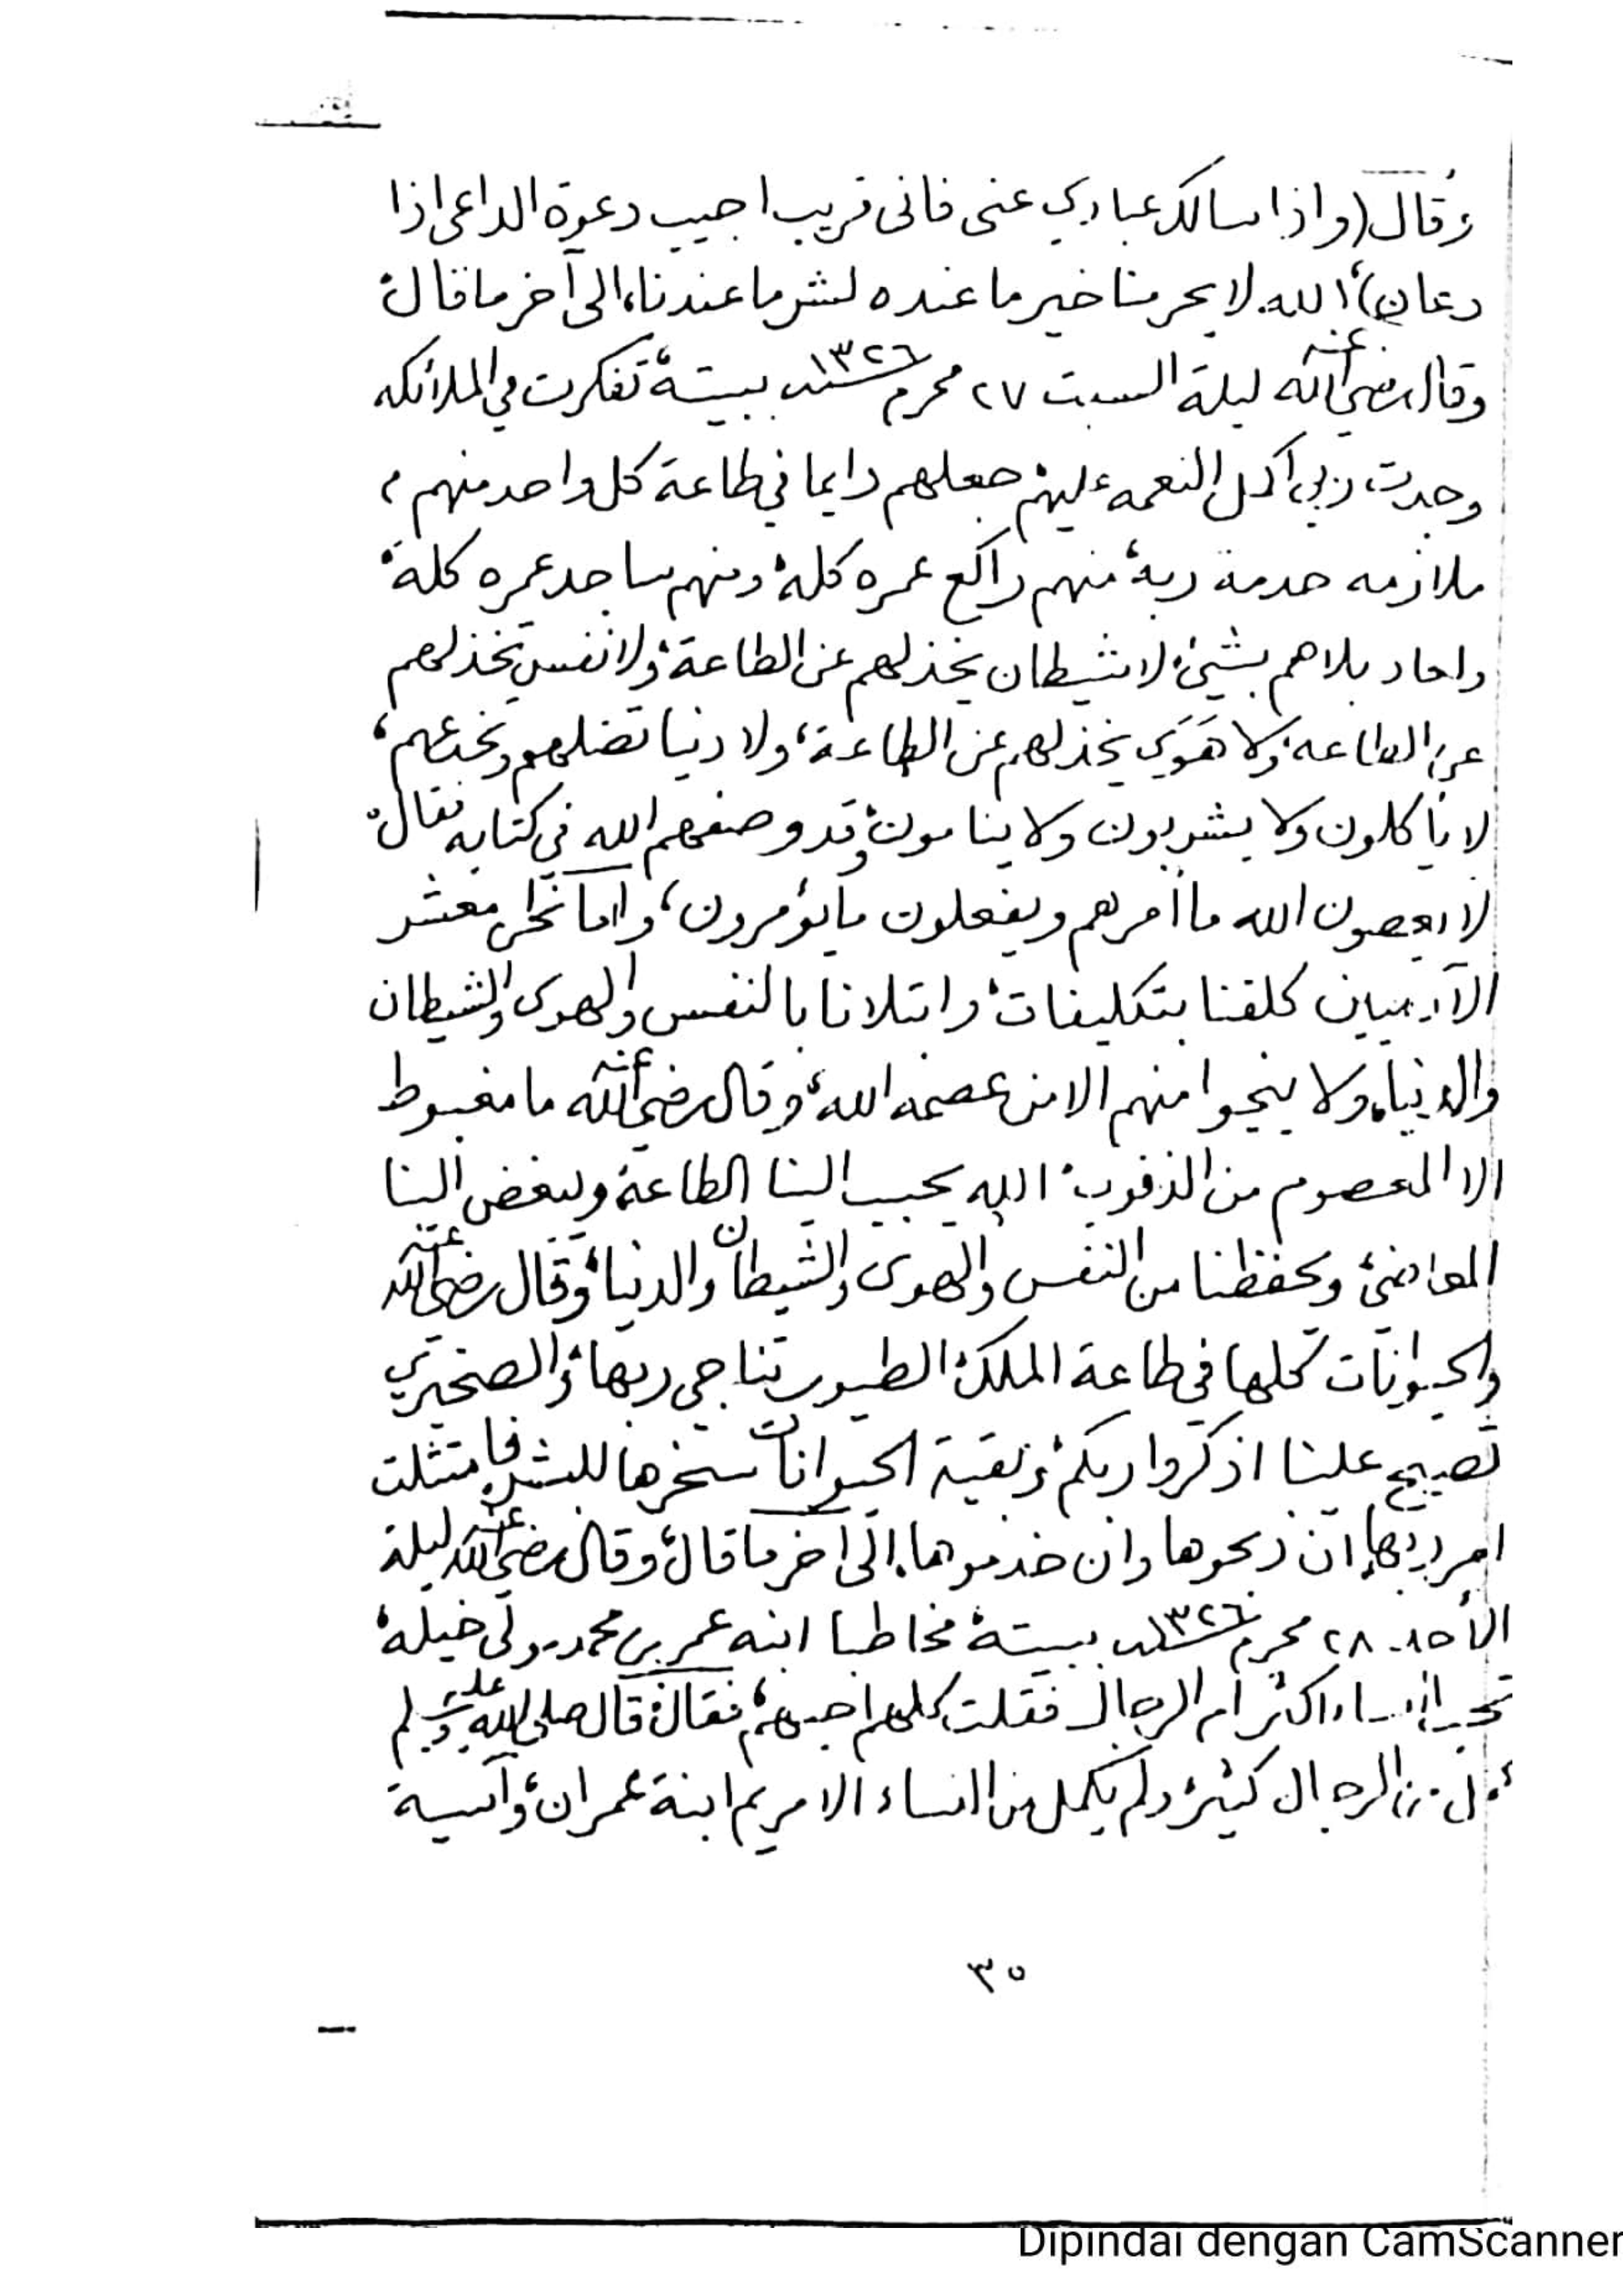 وقال (واذا سالك عبادي عنى فانى قريب اجيب دعوة الداعى اذا
دعان)، الله لا يحرمنا خير ما عنده لشر ما عندنا، الى آخر ما قال،
وقال رضي الله عنه ليلة السبت ٢٧ محرم سنة ١٣٢٦ ببيته، تفكرت في الملائكه
وجدت ربي اكمل النعمه عليهم جعلهم دايما في طاعة كل واحد منهم،
ملازمه خدمة ربه، منهم راكع عمره كله، ومنهم ساجد عمره كله،
بلاهم بشيئ، لا شيطان يخذلهم عن الطاعة، ولا نفس تخذلهم
عن الطاعه، ولا هَوَي يخذلهم عن الطاعة، ولا دنيا تضلهم وتخدعهم،
لا يأكلون ولا يشربون ولا ينامون، وقد وصفهم الله في كتابه فقال،
لا يعصون الله ما أمرهم ويفعلون ما يؤمرون، واما نحن معشر
الآدميين كلفنا بتكليفات، وابتلانا بالنفس والهوى والشيطان
والدنيا، ولا ينجوا منهم الا من عصمه الله، وقال رضي الله عنه ما مغبوط
الا المعصوم من الذنوب، الله يحبب الينا الطاعة ويبغض الينا
المعاصي، ويحفظنا من النفس والهوى والشيطان والدنيا، وقال رضي الله عنه
والحيوانات كلها في طاعة الملك، الطيور تناجي ربها، و
تصيح علينا اذكروا ربكم، وبقية الحيوانات سخرها للبشر فامتثلت
امر ربها، ان ذبحوها وان خدموها، الى آخر ما قال، وقال رضي الله عنه ليلة
الأحد ٢٨ محرم سنة ١٣٢٦ ببيته، مخاطبا ابنه عمر بن محمد مولى خيله،
تحب النساء اكثر ام الرجال فقلت كلهم احبهم، فقال، قال صلى الله عليه وسلم
كمل من الرجال كثير، ولم يكمل من النساء الا مريم ابنة عمران، وآسية
٣٥
Dipindai dengan CamScanner